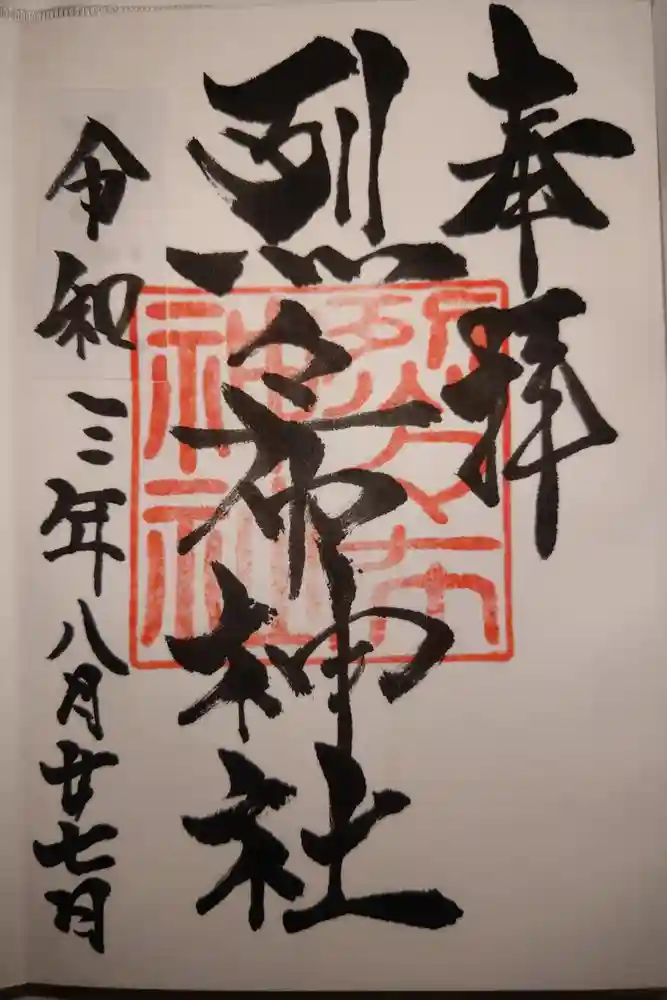 奉拝
烈々布神社
令和三年八月廿七日
烈々布
神社